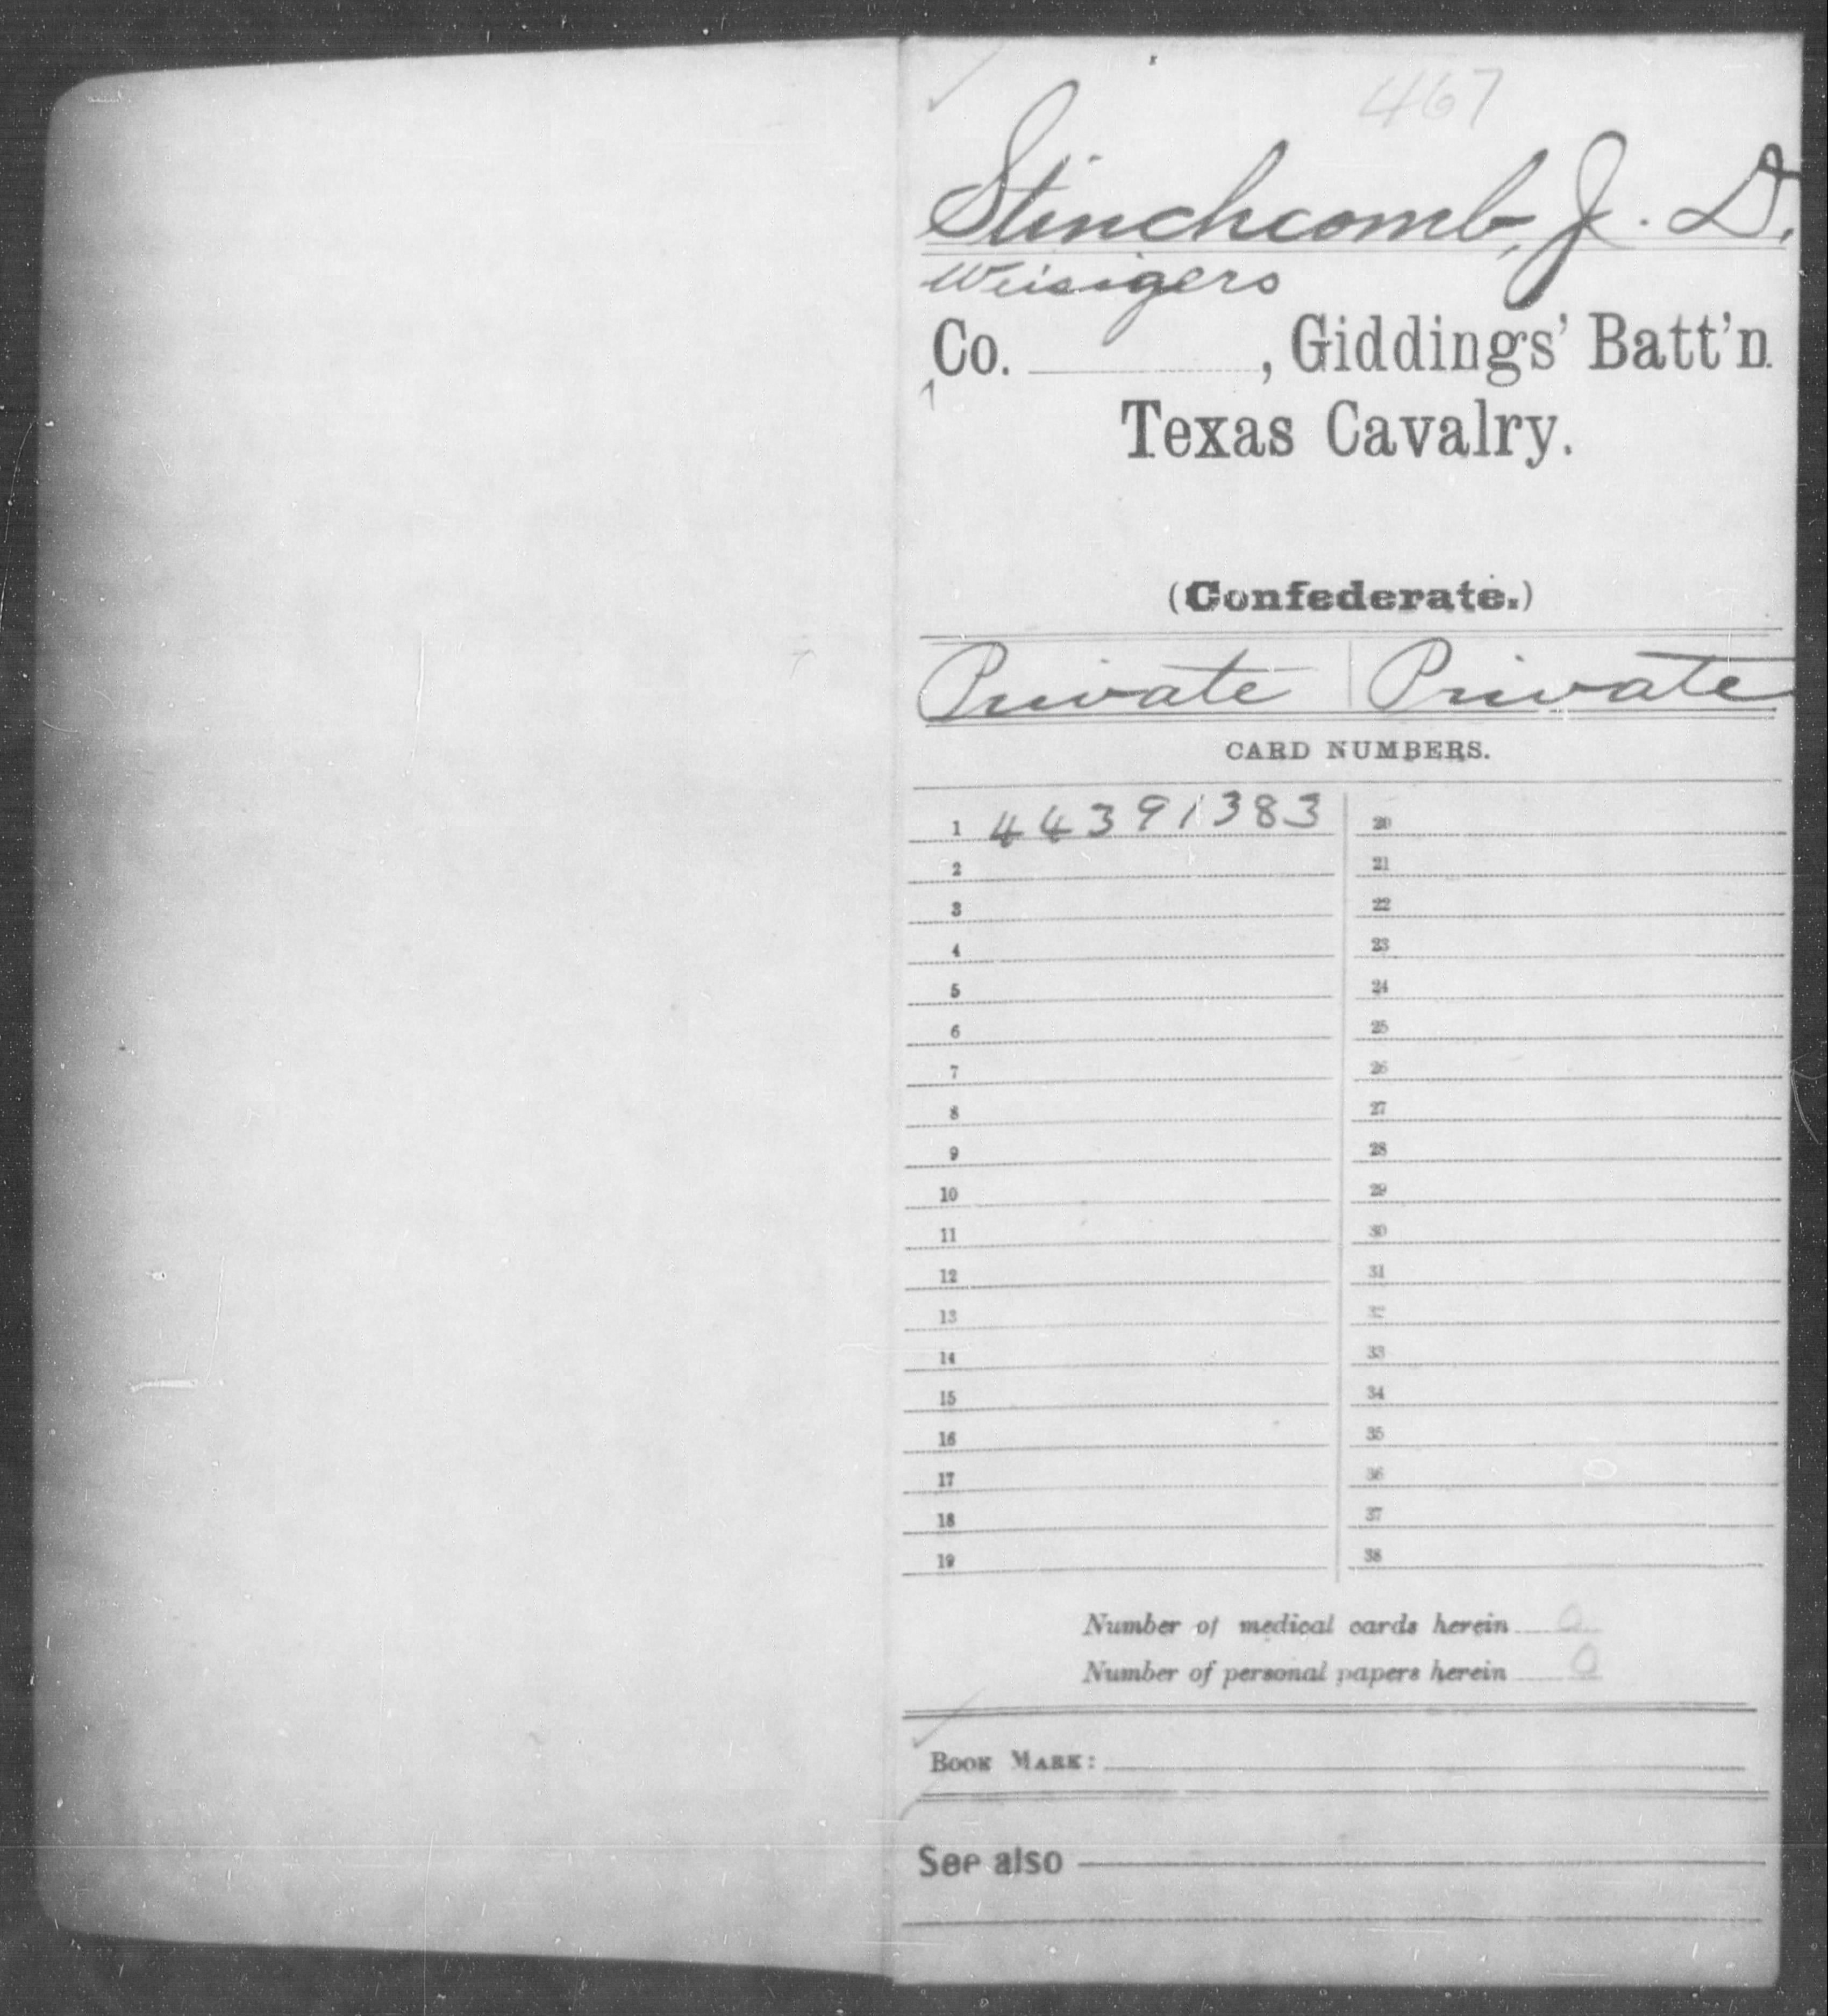 467
Stinchcomb, J. D.
Weisigers
Co. , Giddings' Batt'n.
Texas Cavalry.
(Confederate.)
Private | Private
CARD NUMBERS.
1 44391383 20
2 21
3 22
4 23
5 24
6 25
7 26
8 27
9 28
10 29
11 30
12 31
13 32
14 33
15 34
16 35
17 36
18 37
19 38
Number of medical cards herein 0
Number of personal papers herein 0
BOOK MARK:
See also